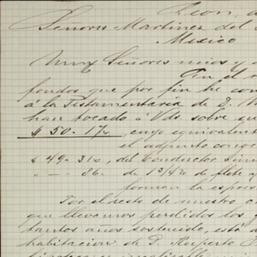 Leon, a
Señores Martinez del
Mexico
Muy Señores mios y
En el
fondos que por fin he con
á la Testamentaría de D.
han tocado á Vds sobre su
$ 50.17½ cuyo equivalente
el adjunto conoc
$ 49.31¼, del Conductor
" - 86. de 1¾% de flete y
forman la espres
Por el resto de nuestro c
que llevamos perdidos los
tantos años sostenido, está
habitacion de D. Ruperto